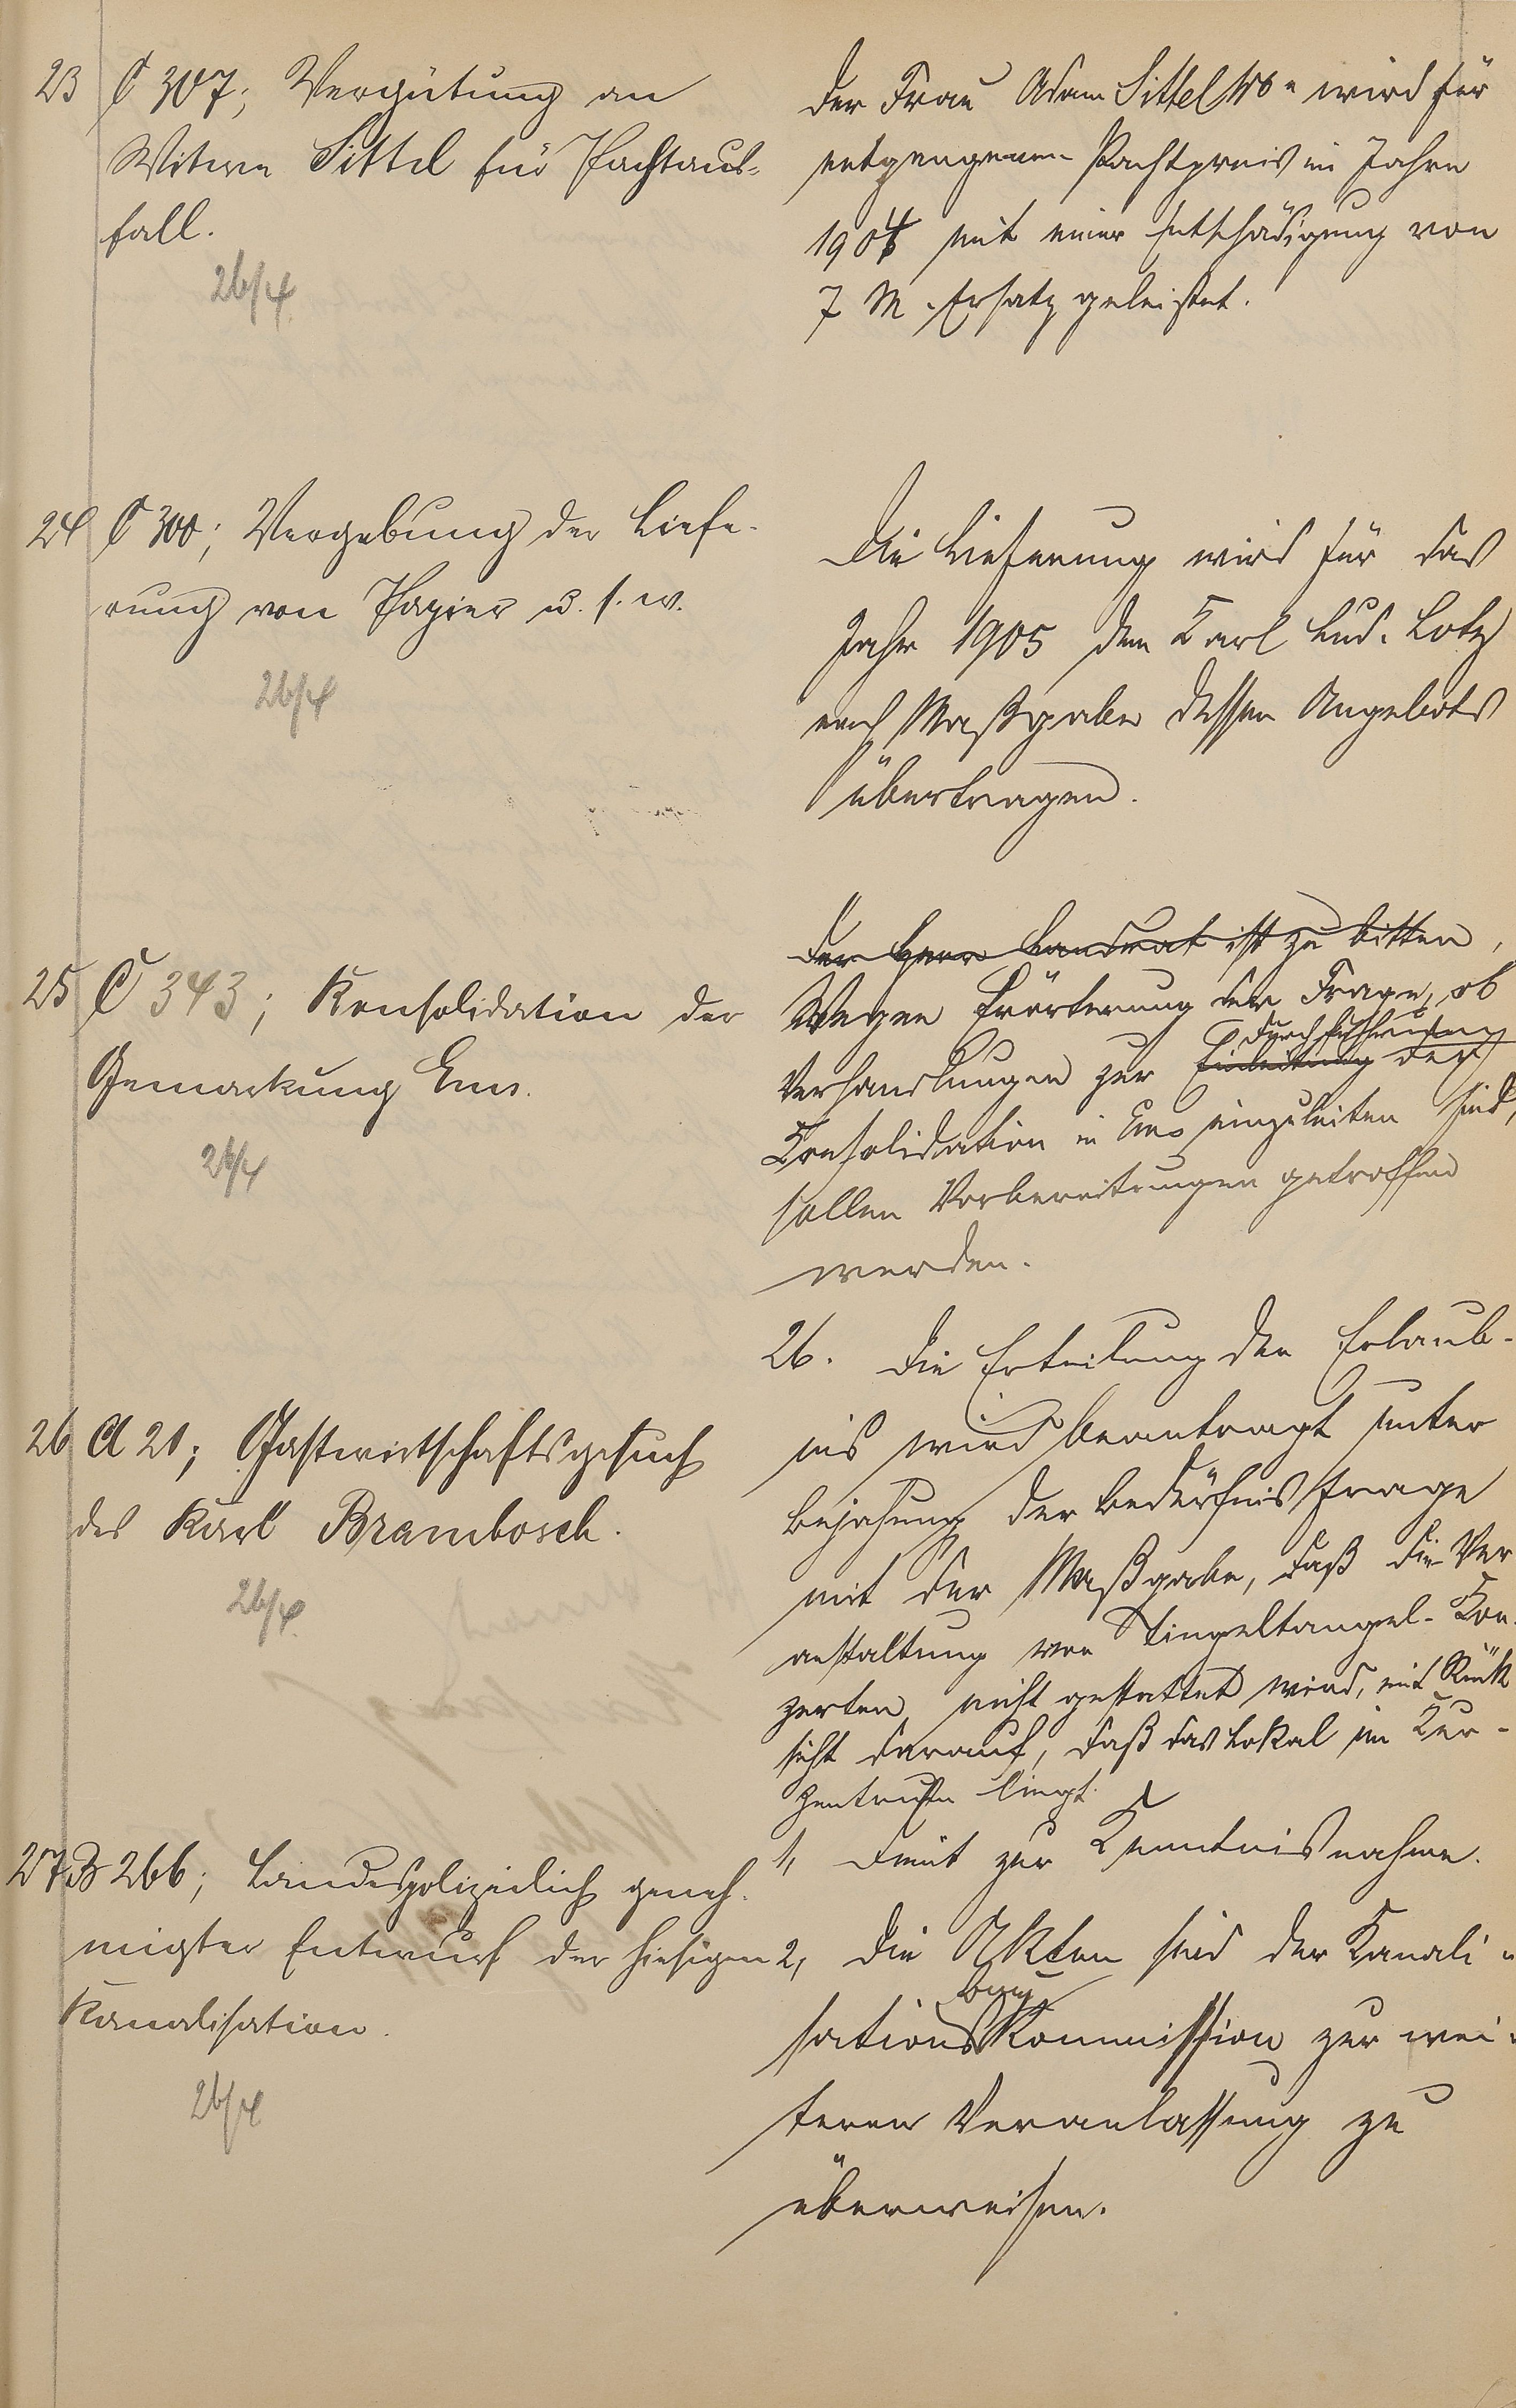 23 C 307; Vergütung an
Witwe Sittel für Pachtaus-
fall.
26/4.
Der Frau Adam Sittel Ww. wird für
entgangenen Pachtpreis im Jahre
1904 mit einer Entschädigung von
7 M. Ersatz geleistet.
24 C 300; Vergebung der Liefe-
rung von Papier u. s. w.
26/4
Die Lieferung wird für das
Jahr 1905 dem Karl Lud. Lotz
nach Maßgabe dessen Angebots
übertragen.
25 C 343; Konsolidation der
Gemarkung Ems.
26/4
Der Herr Landrat ist zu bitten,
Wegen Erörterung der Frage, ob
Verhandlungen zur Einleitung der
Konsolidation in Ems einzuleiten sind,
sollen Vorbereitungen getroffen
werden.
26 A 21; Gastwirtschaftsgesuch
des Karl Brambosch.
26/4.
26. Die Erteilung der Erlaub-
nis wird beantragt unter
Bejahung der Bedürfnisfrage
mit der Maßgabe, daß die Ver
anstaltung von Tingeltangel-Kon-
zerten nicht gestattet wird, mit Rück
sicht darauf, daß das Lokal im Kur-
zentrum liegt.
27 B 266; Landespolizeilich geneh-
migter Entwurf der hiesigen
Kanalisation.
26/4
1, Dient zur Kenntnisnahme.
2, Die Akten sind der Kanali-
bau
sations Kommission zur wei-
teren Veranlassung zu
überweisen.